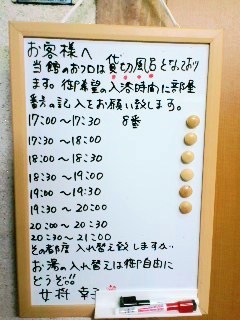 お客様へ
当館のお風呂は貸切風呂となっており
ます。御希望の入浴時間に部屋
番号の記入をお願い致します。
17:00〜17:30 8番
17:30 〜18:00
18:00 〜 18:30
18:30 〜 19:00
19:00 〜 19:30
19:30 〜 20:00
20:00 〜 20:30
20:30 〜 21:00
その都度 入れ替え致しますがい
お湯の入れ替えは御自由に
どうぞ!!
女将 幸子